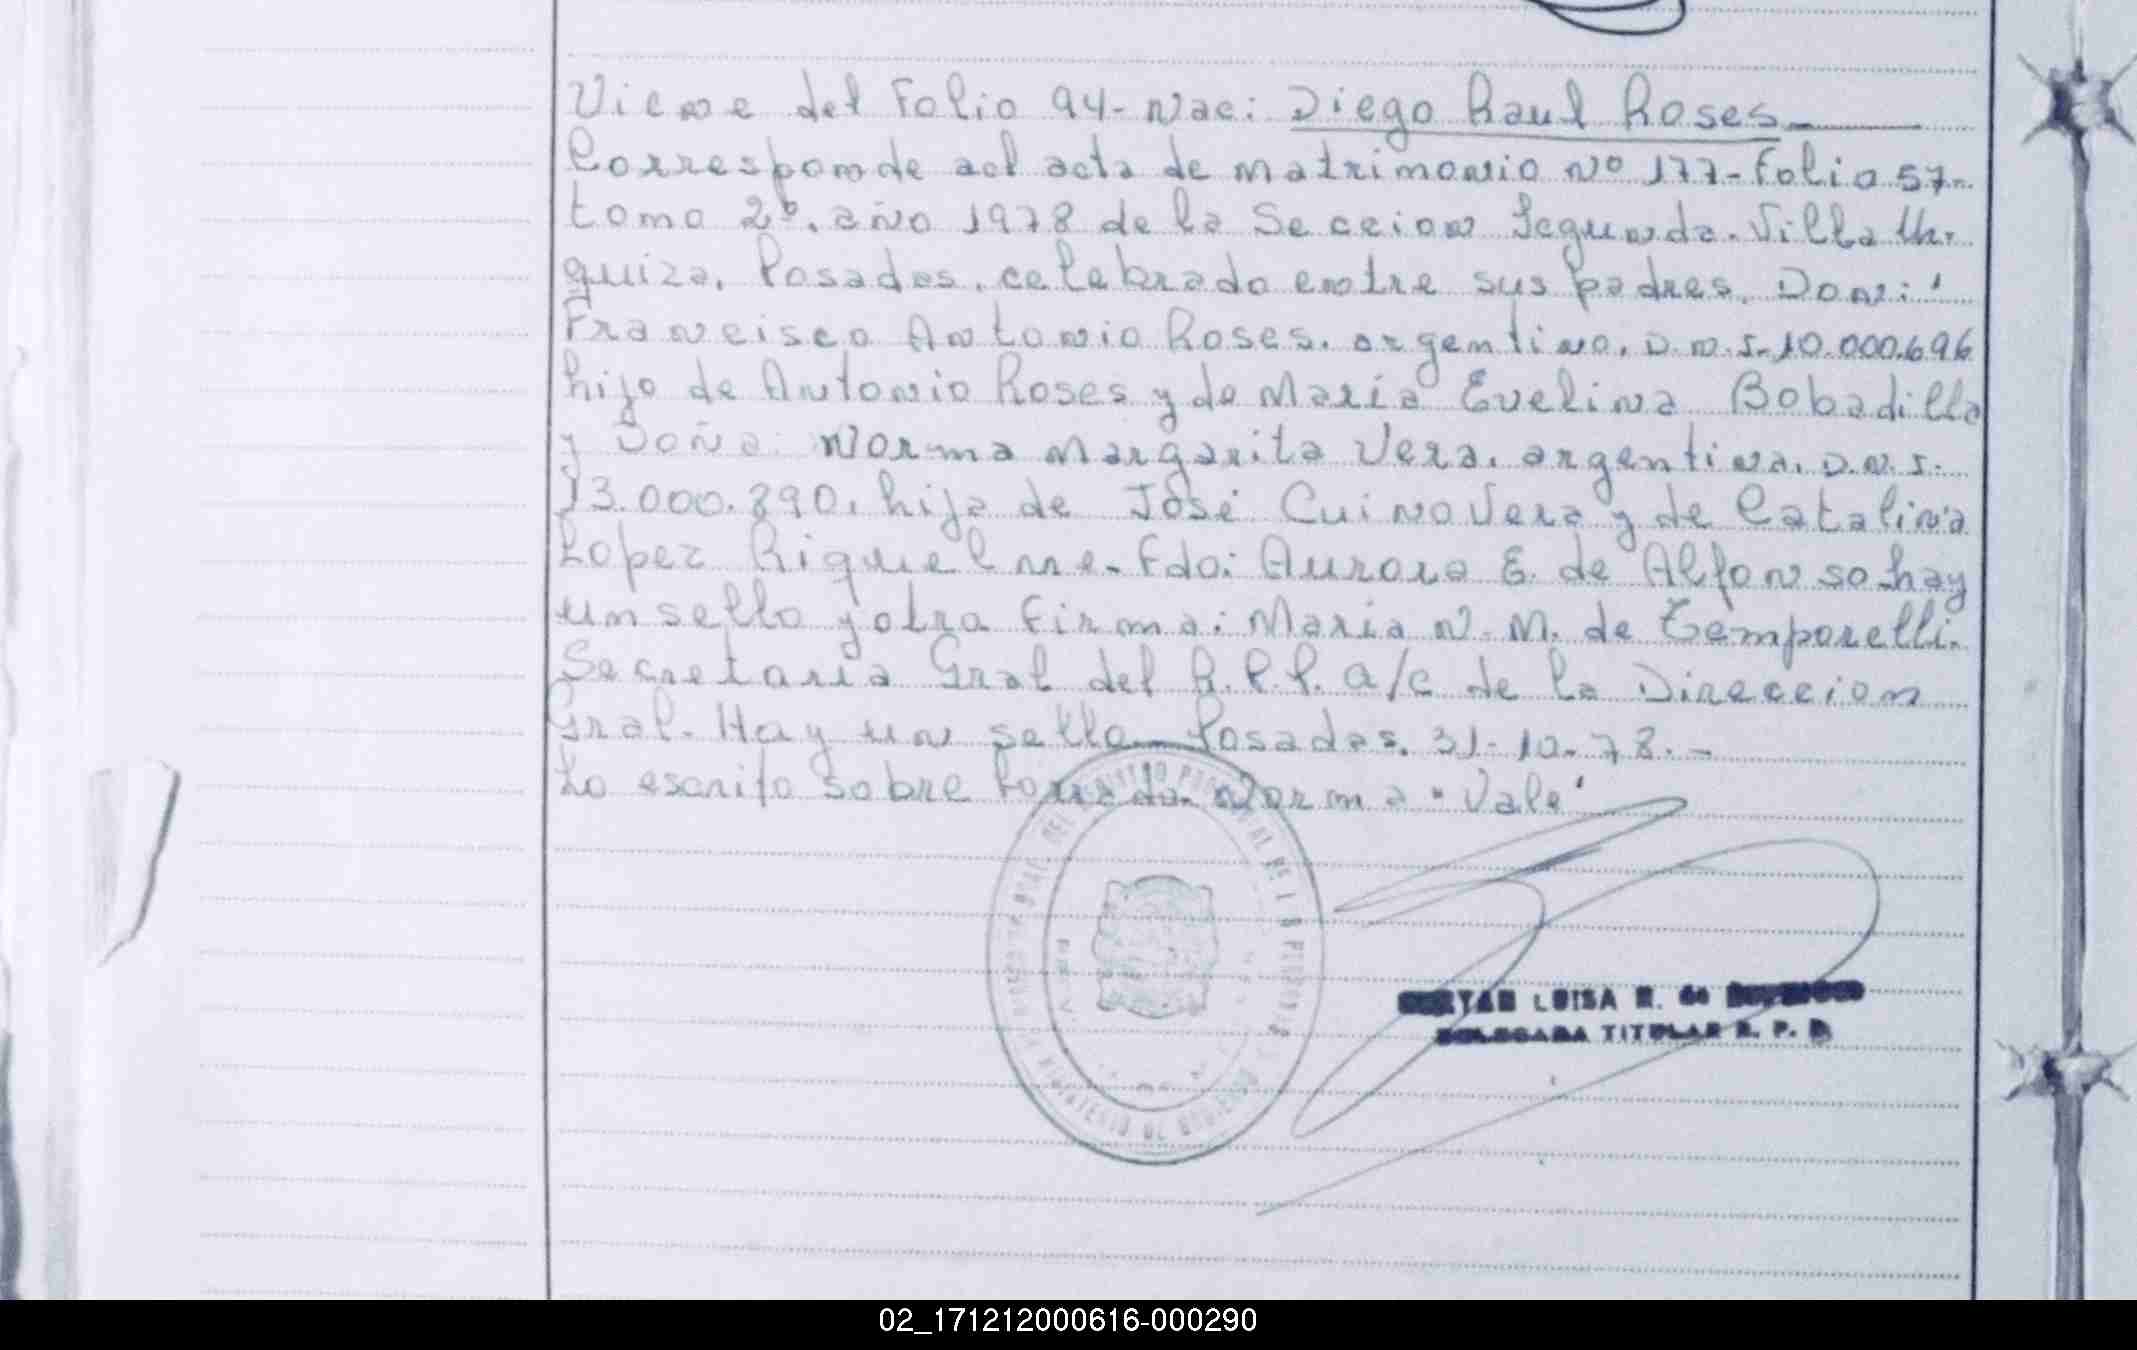 Viene del Folio 94- Nac: Diego Raul Roses
Corresponde acl acta de matrimonio Nº 177- Folio 57-
tomo 2º. año 1978 de la Seccion Segunda. Villa Ur-
quiza. Posadas. celebrado entre sus padres. Don:
Francisco Antonio Roses. argentino. D.N.I. 10.000.696
hijo de Antonio Roses y de María Evelina Bobadilla
y Doña: Norma Margarita Vera. argentina. D.N.I.
13.000.890. hija de José Cuino Vera y de Catalina
Lopez Riquelme- Fdo: Aurora E. de Alfonso hay
un sello y otra firma: Maria N. M. de Temporelli.
Secretaria Gral del R.P.P. a/c de la Direccion
Gral. Hay un sello Posadas. 31-10-78.-
Lo escrito sobre borrado Norma "Vale"
LUISA R. de
DELEGADA TITULAR R. P. P.
MINISTERIO DE GOBIERNO
02_171212000616-000290